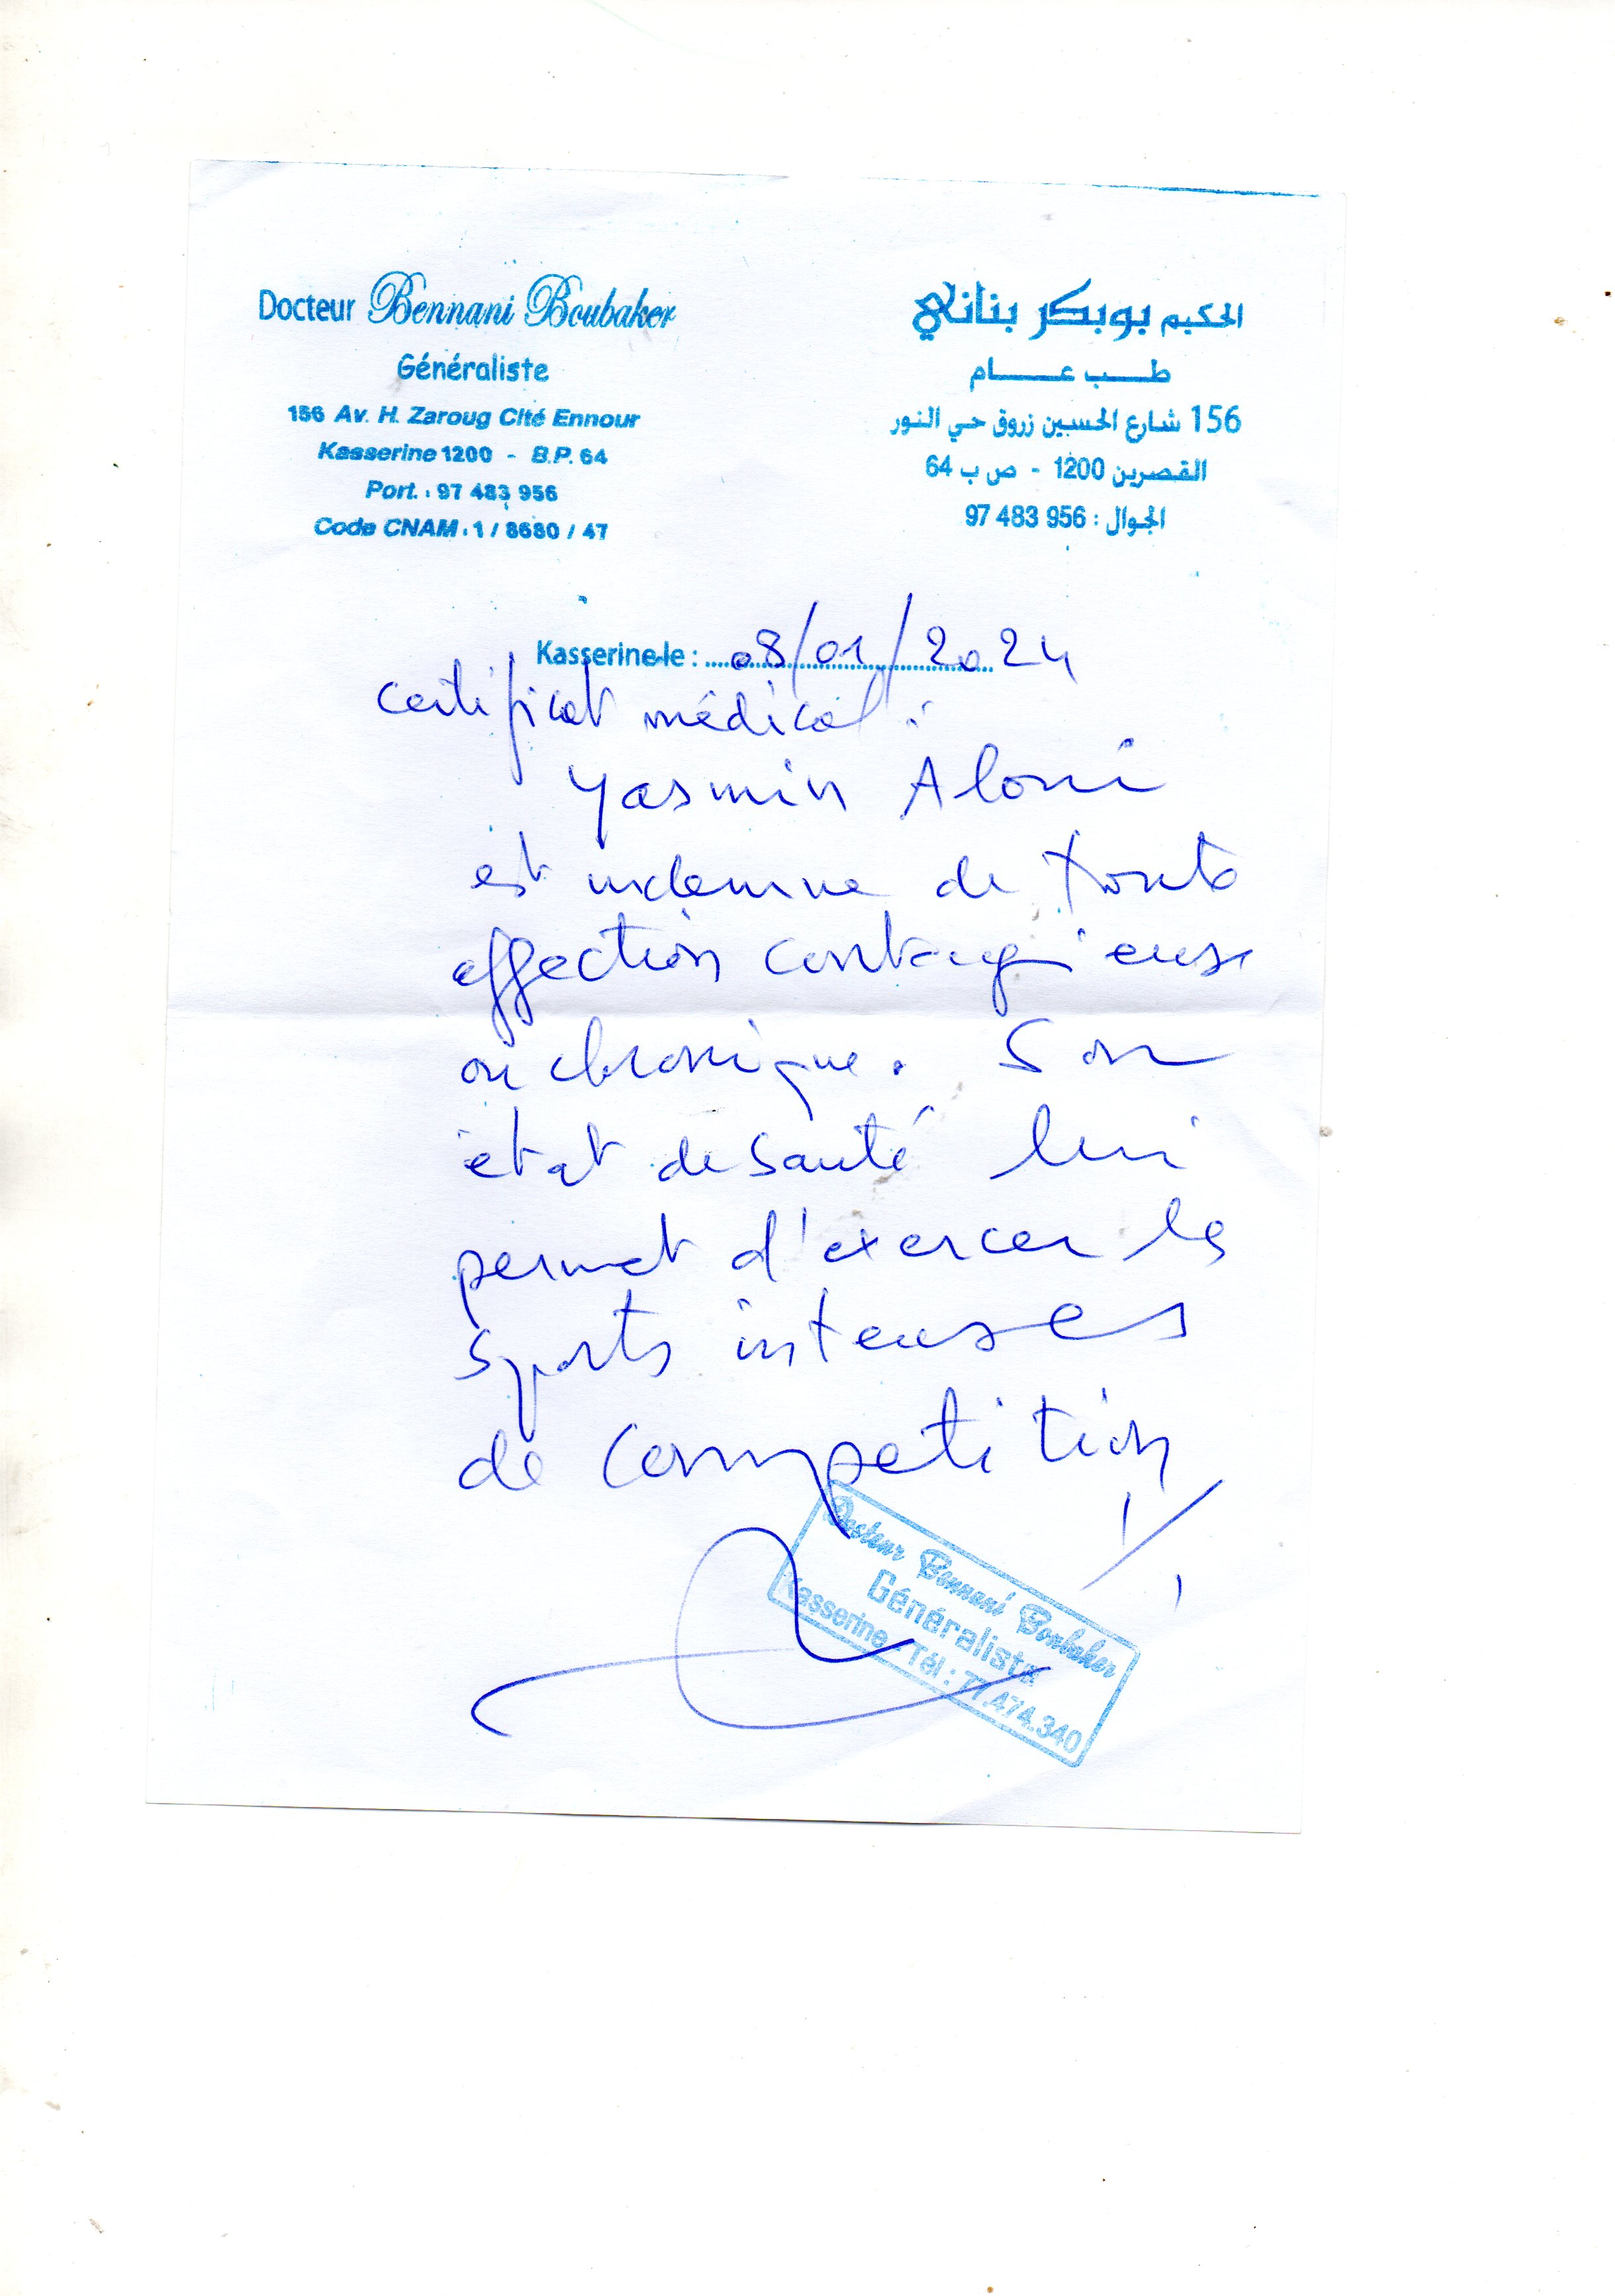 Docteur Bennani Boubaker
Généraliste
156 Av. H. Zaroug Cité Ennour
Kasserine 1200 - B.P. 64
Port. : 97 483 956
Code CNAM : 1 / 8680 / 47
الحكيم بوبكر بناني
طب عام
156 شارع الحسين زروق حي النور
القصرين 1200 - ص ب 64
الجوال : 956 483 97
Kasserine le : 08/01/2024
Certificat médical :
Yasmin Aloui
est indemne de toute
affection contagieuse
ou chronique. Son
état de santé lui
permet d'exercer les
sports intenses
de competition
Docteur Bennani Boubaker
Généraliste
Kasserine - Tél : 77.474.340